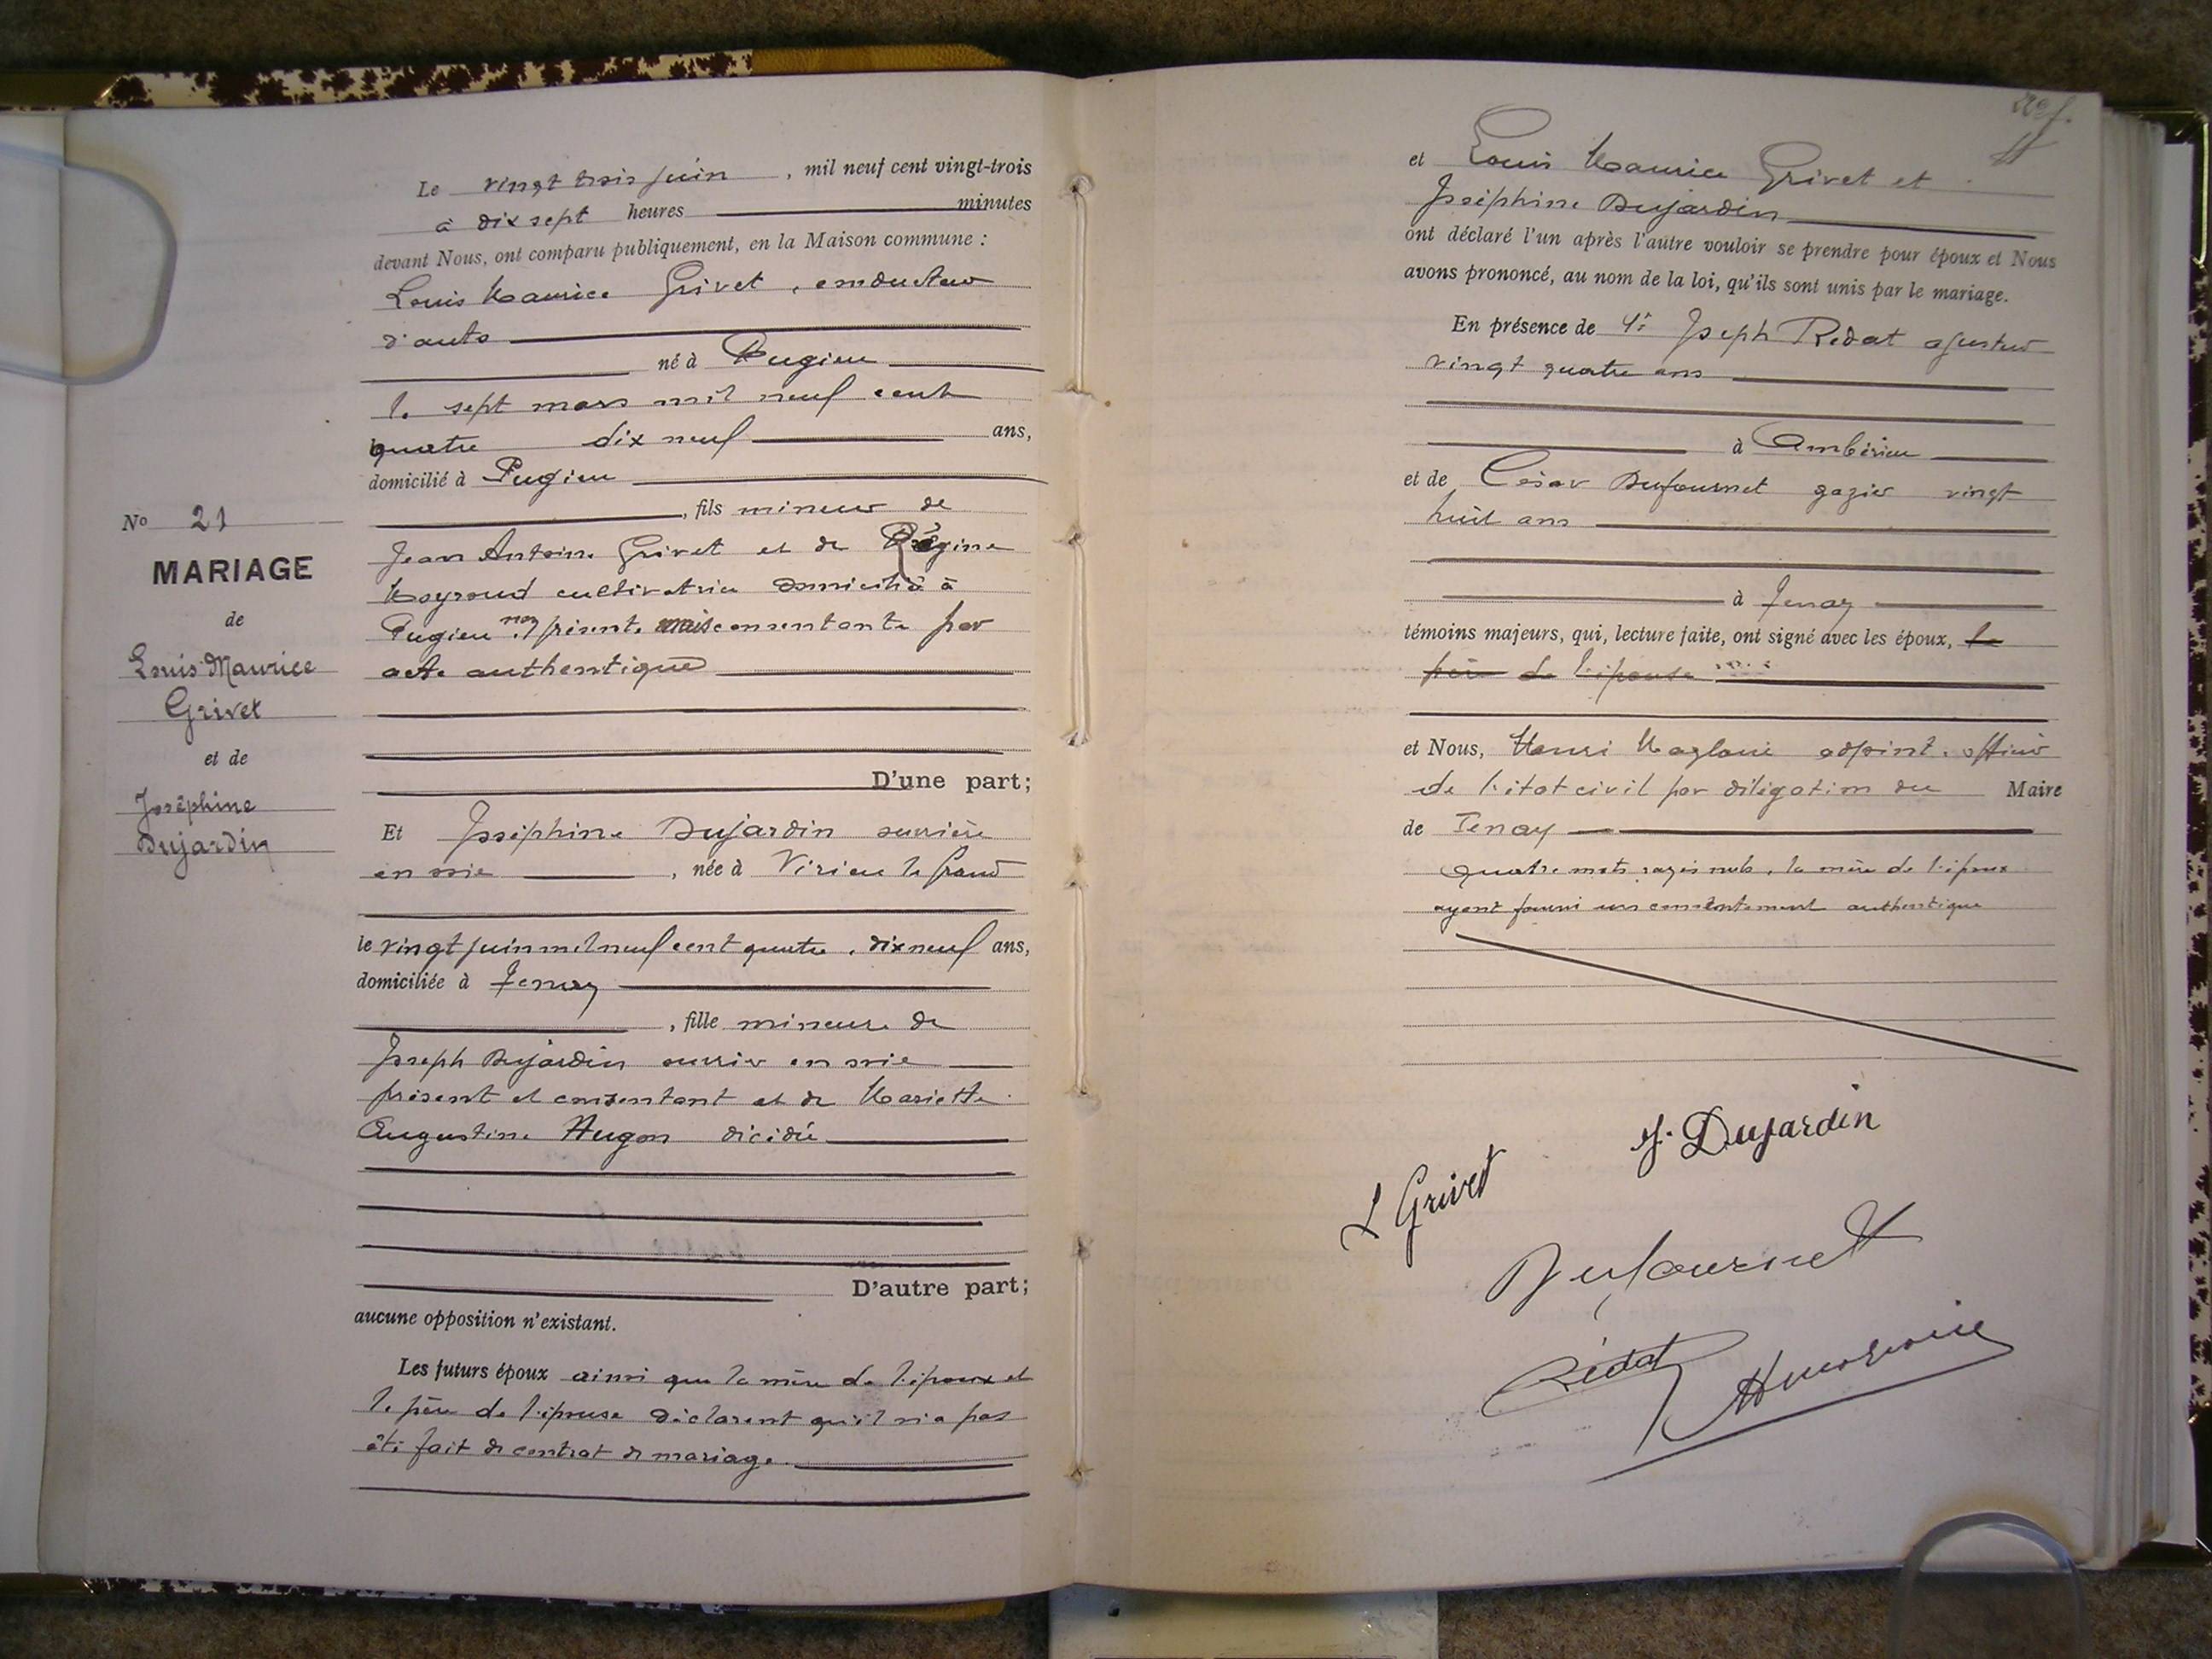 Le vingt trois juin, mil neuf cent vingt-trois
à dix sept heures minutes
devant Nous, ont comparu publiquement, en la Maison commune :
Louis Maurice Grivet, conducteur
d'auto
né à Pugieu
le sept mars mil neuf cent
quatre dix neuf ans,
domicilié à Pugieu
, fils mineur de
Jean Antoine Grivet et de Régine
cultivatrice domiciliée à
Pugieu non présente mais consentante par
acte authentique
D'une part;
No 21
MARIAGE
de
Louis Maurice
Grivet
et de
Joséphine
Dujardin
Et Joséphine Dujardin ouvrière
en soie, née à Virieu le Grand
le vingt juin mil neuf cent quatre, dix neuf ans,
domiciliée à Tenay
, fille mineure de
Joseph Dujardin ouvrier en soie
présent et consentant et de Mariette
Augustine Hugon décédée
D'autre part;
aucune opposition n'existant.
Les futurs époux ainsi que la mère de l'époux et
le père de l'épouse déclarent qu'il n'a pas
été fait de contrat de mariage.
et Louis Maurice Grivet et
Joséphine Dujardin
ont déclaré l'un après l'autre vouloir se prendre pour époux et Nous
avons prononcé, au nom de la loi, qu'ils sont unis par le mariage.
En présence de Joseph Redat ajusteur
vingt quatre ans
à Ambérieu
et de César Dufournet gazier vingt
huit ans
à Tenay
témoins majeurs, qui, lecture faite, ont signé avec les époux, le
père de l'épouse
et Nous, Henri adjoint, officier
de l'état civil par délégation du Maire
de Tenay
quatre mots rayés nuls, la mère de l'époux
ayant fourni un consentement authentique
J. Dujardin
L Grivet
Dufournet
Rédat